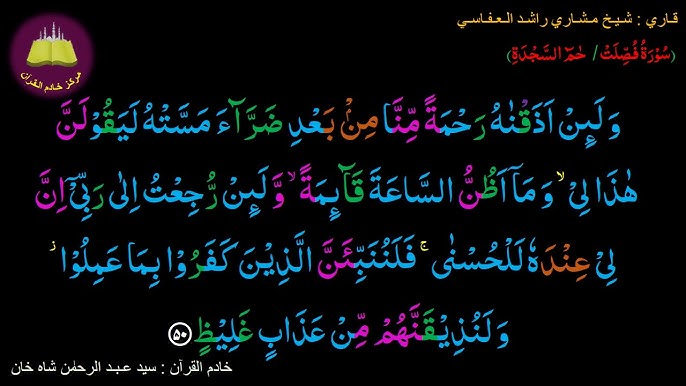 قاري : شيخ مشاري راشد العفاسي
(سُوْرَةُ فُصِّلَتْ / حٰمٓ السَّجْدَةِ)
مركز خادم القرآن
وَلَىِٕنْ اَذَقْنٰهُ رَحْمَةً مِّنَّا مِنْۢ بَعْدِ ضَرَّآءَ مَسَّتْهُ لَيَقُوْلَنَّ
هٰذَا لِيْ ۙ وَمَاۤ اَظُنُّ السَّاعَةَ قَآىِٕمَةً ۙ وَّلَىِٕنْ رُّجِعْتُ اِلٰى رَبِّيْۤ اِنَّ
لِيْ عِنْدَهٗ لَلْحُسْنٰى ۚ فَلَنُنَبِّئَنَّ الَّذِيْنَ كَفَرُوْا بِمَا عَمِلُوْا ۫
وَلَنُذِيْقَنَّهُمْ مِّنْ عَذَابٍ غَلِيْظٍ ۝۵۰
خادم القرآن : سيد عبد الرحمٰن شاه خان